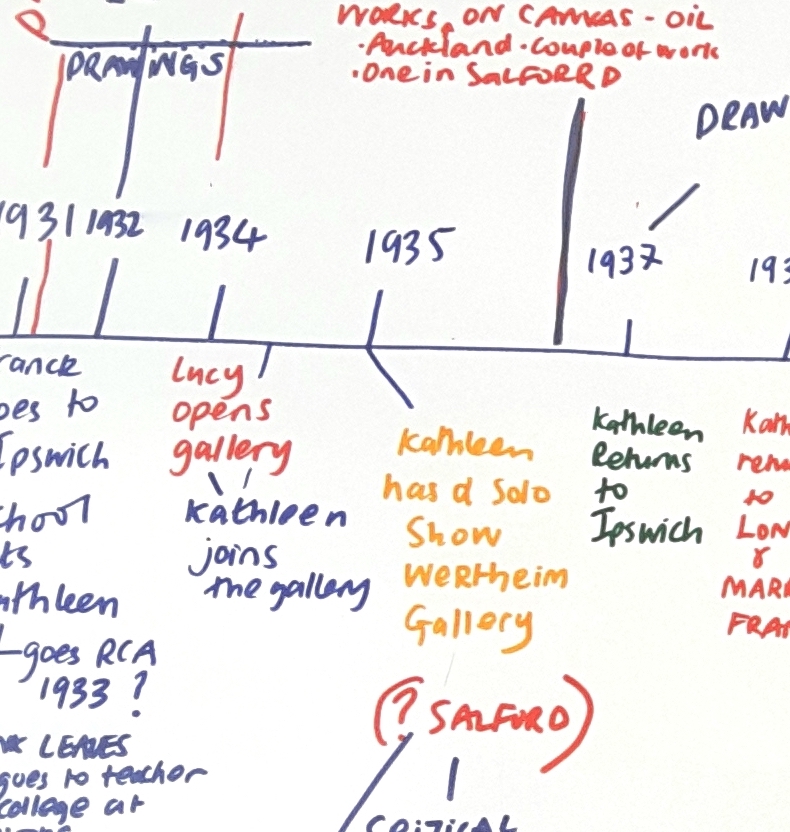 WORKS ON CANVAS - OIL
· Auckland · couple of work
· One in SALFORRD
DRAWINGS
DRAW
1931 1932 1934 1935 1937 193
Lucy
opens
gallery
Kathleen
joins
the gallery
oes to
Ipswich
goes RCA
1933 ?
LEAVES
goes to teacher
college at
Kathleen
has a Solo
Show
WERtheim
Gallery
(? SALFORD)
CRITICAL
Kathleen
Returns
to
Ipswich
Kath
retu
to
LON
&
MARR
FRAN